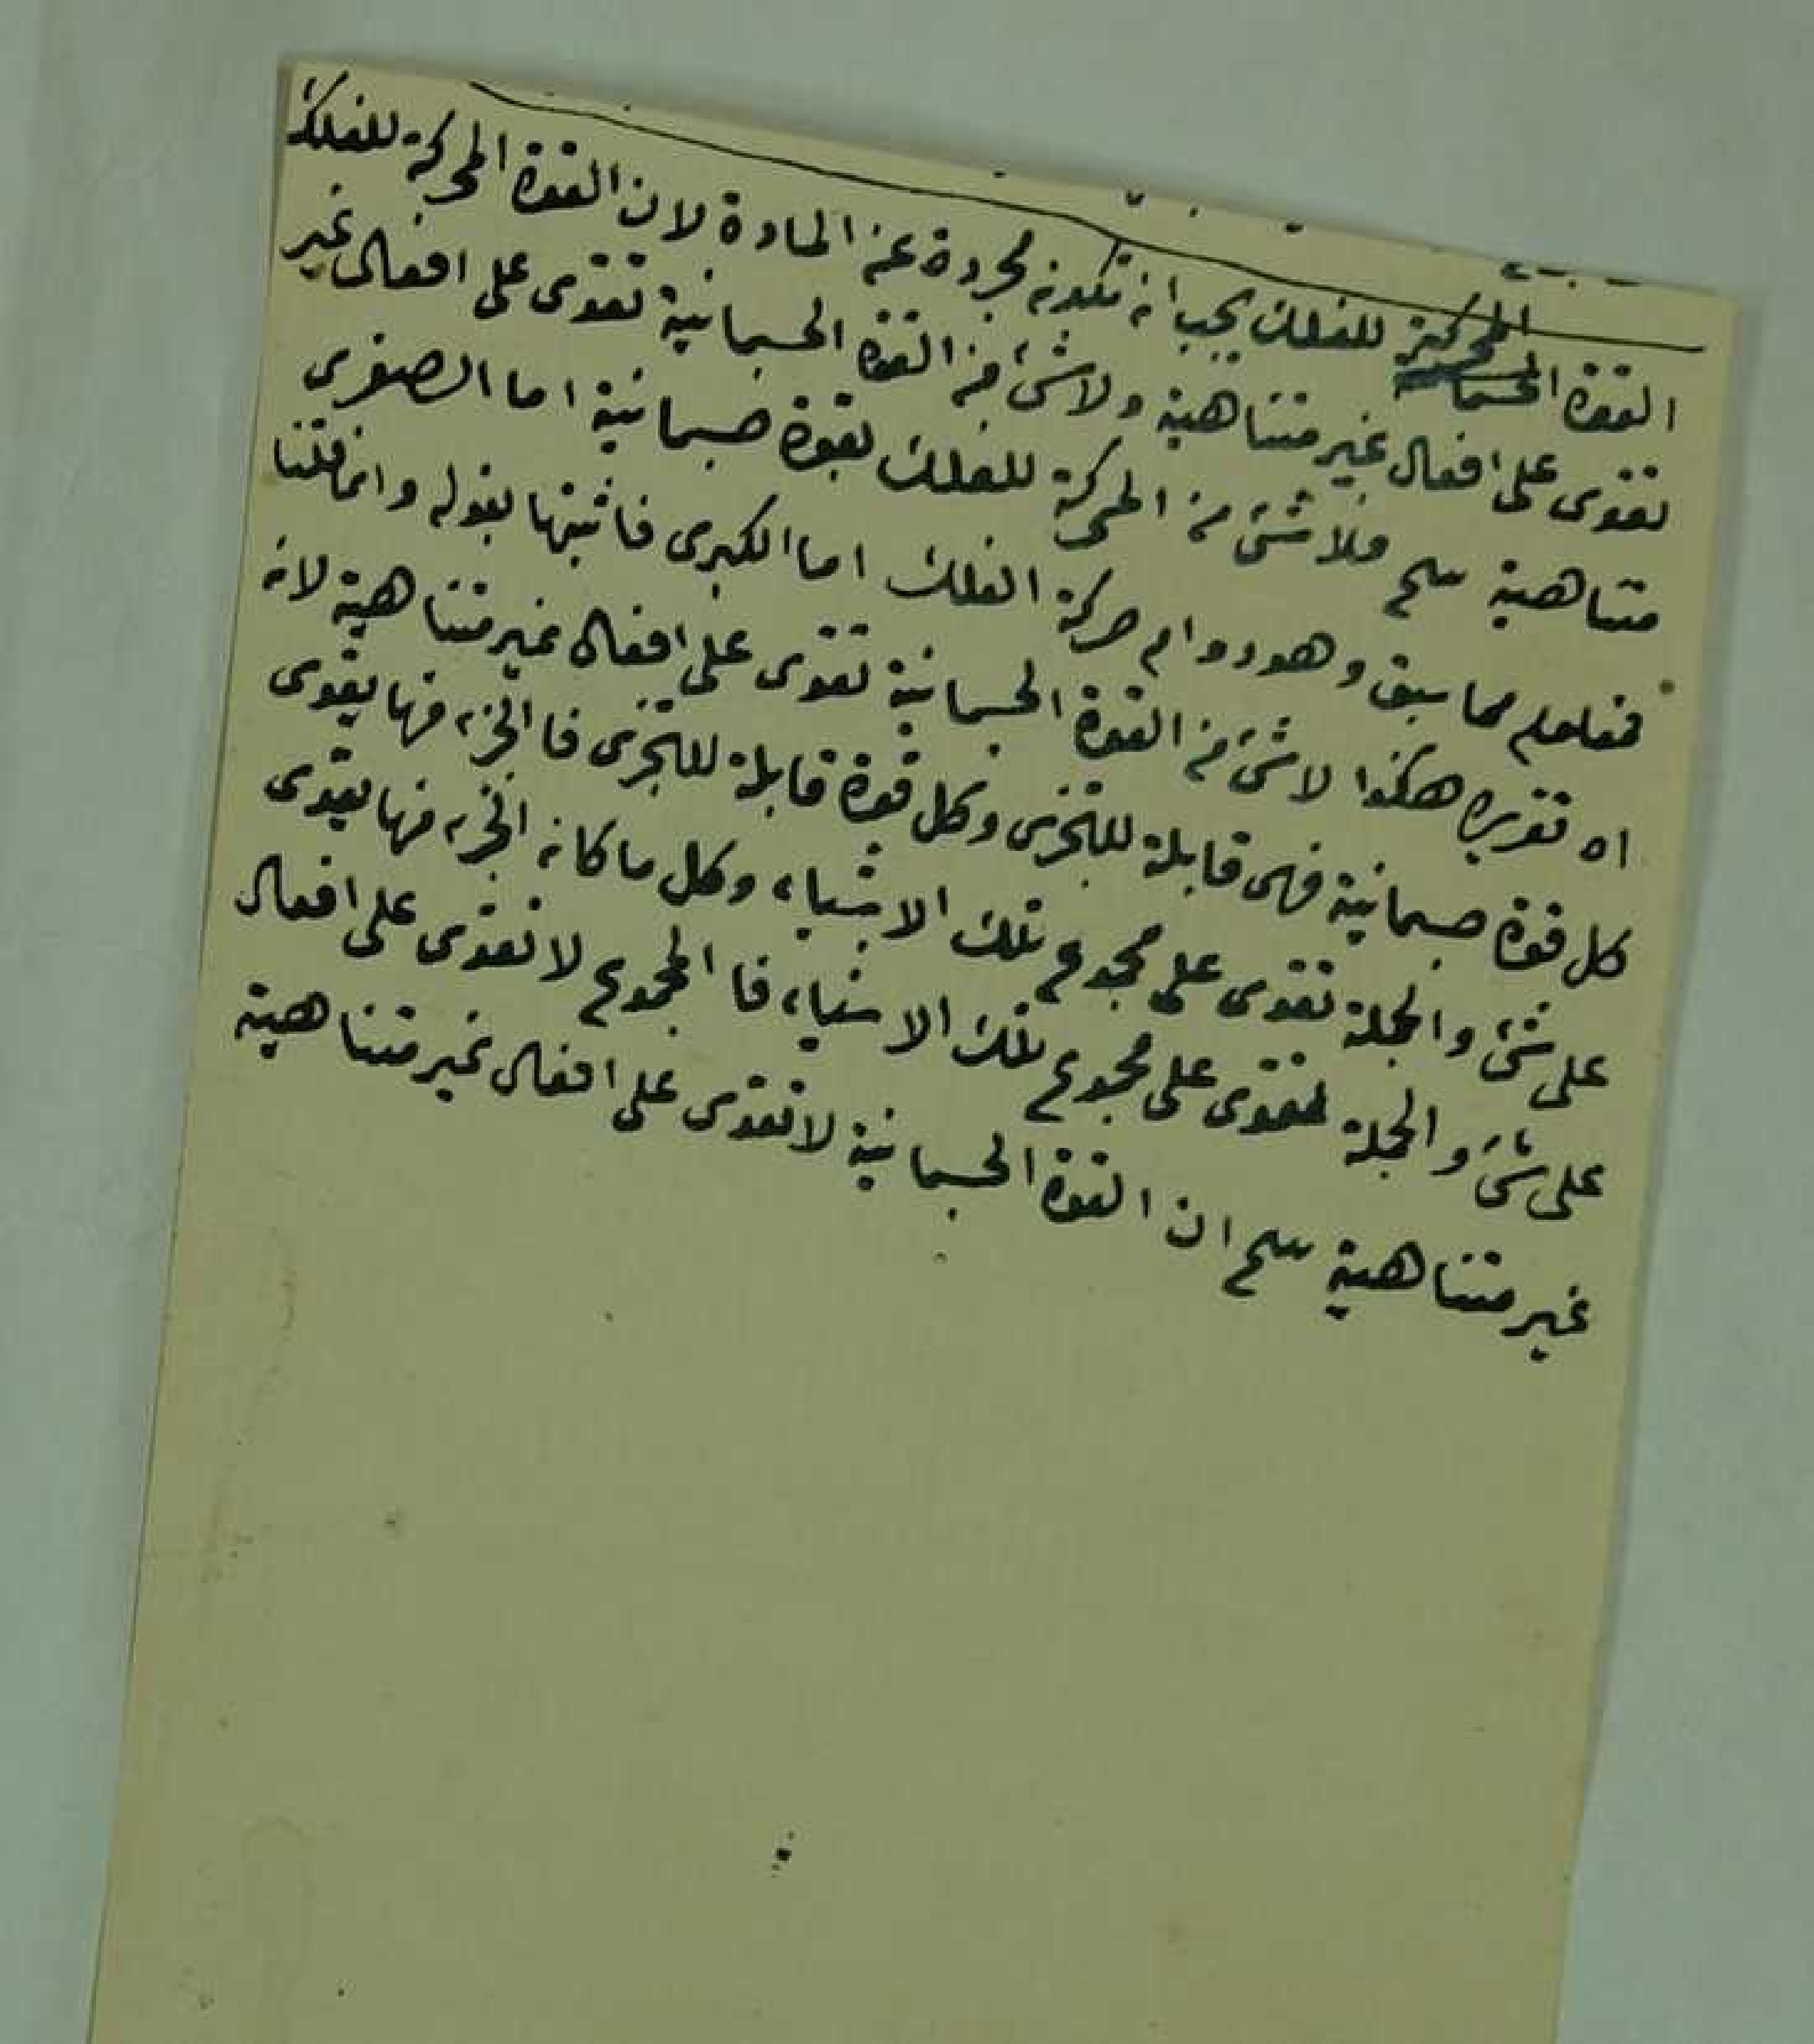 القوة المحركة للفلك يجب ان تكون مجردة عن المادة لان القوة المحركة للفلك
تقوى على افعال غير متناهية ولا شئ من القوة الجسمانية تقوى على افعال غير
متناهية ينتج فلا شئ من المحركة للفلك بقوة جسمانية اما الصغرى
فمعلوم مما سبق وهو دوام حركة الفلك اما الكبرى فاثبتها بقوله وانما قلنا
اه تقريره هكذا لا شئ من القوة الجسمانية تقوى على افعال غير متناهية لان
كل قوة جسمانية فهى قابلة للتجزى وكل قوة قابلة للتجزى فالجزء منها يقوى
على شئ والجملة تقوى على مجموع تلك الاشياء وكل ما كان الجزء منها يقوى
على شئ والجملة تقوى على مجموع تلك الاشياء فا المجموع لا تقوى على افعال
غير متناهية ينتج ان القوة الجسمانية لا تقوى على افعال غير متناهية